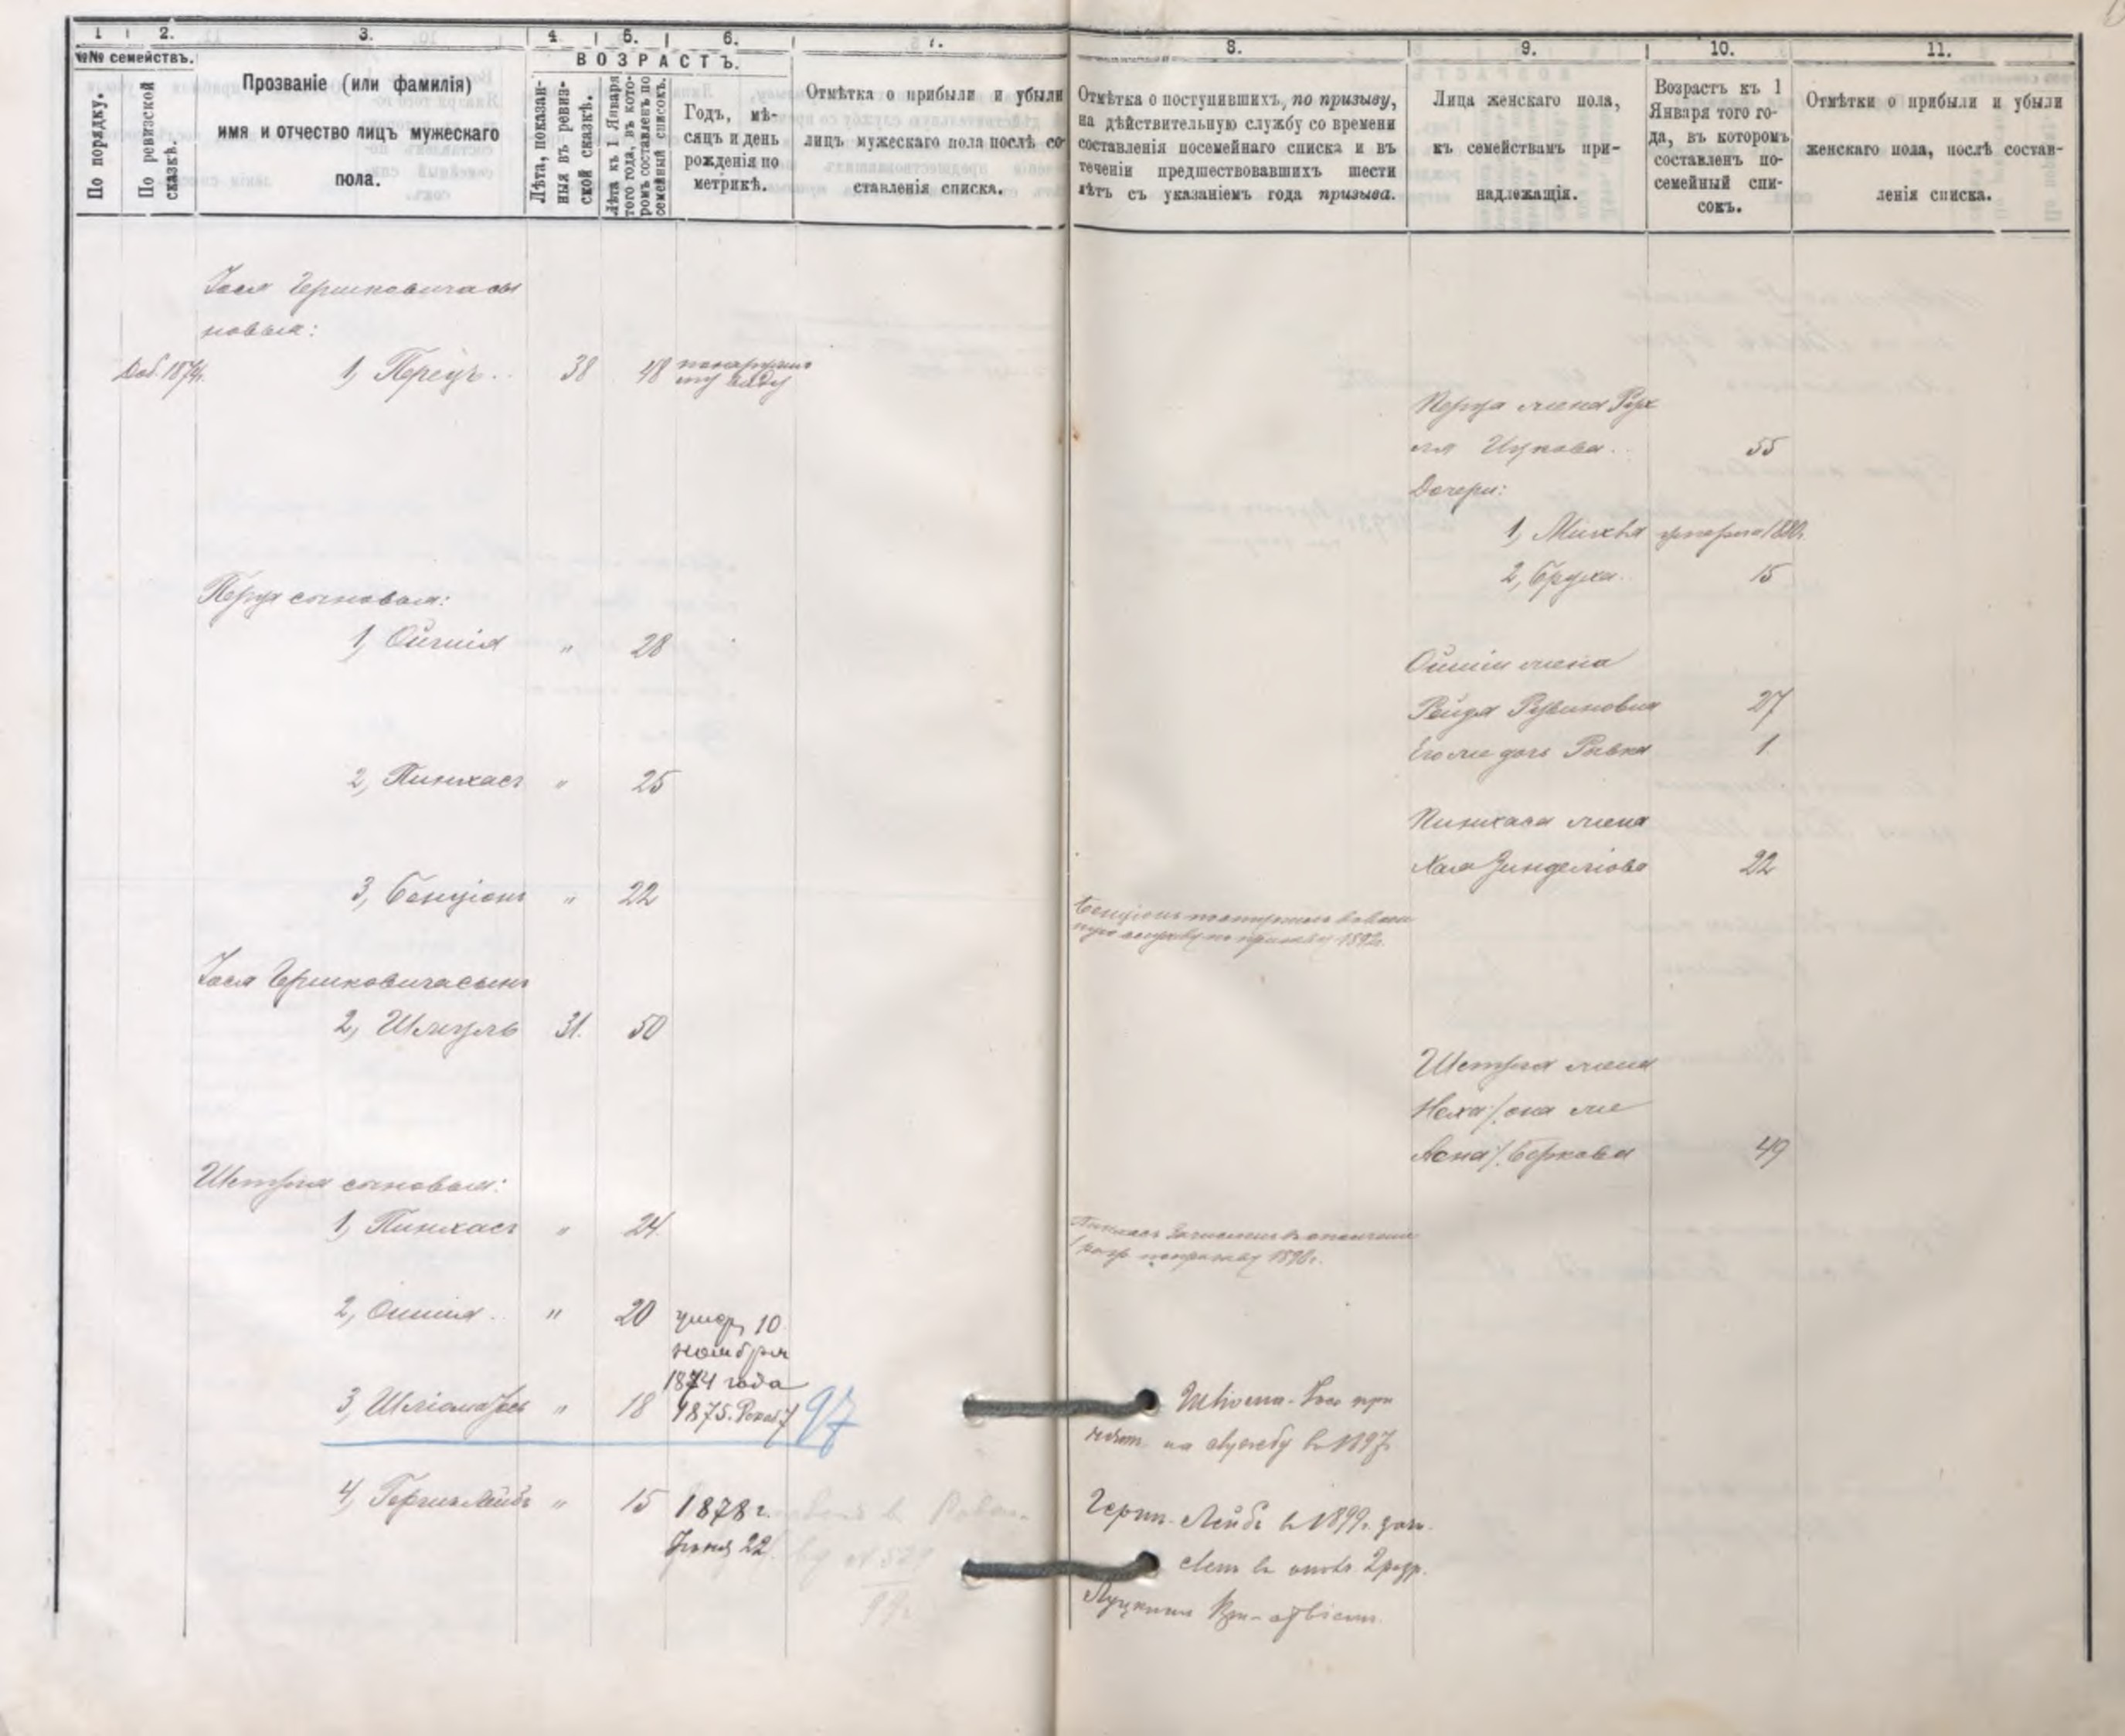 1
2.
3.
4
5.
6.
7.
8.
9.
10.
11.
№№ семействъ.
По порядку.
По ревизской
сказкѣ.
Прозваніе (или фамилія)
имя и отчество лицъ мужескаго
пола.
ВОЗРАСТЪ.
Лѣта, показан-
ныя въ ревиз-
ской сказкѣ.
Лѣта къ 1 Января
того года, въ кото-
ромъ составленъ по
семейный списокъ.
Годъ, мѣ-
сяцъ и день
рожденія по
метрикѣ.
Отмѣтка о прибыли и убыли
лицъ мужескаго пола послѣ со-
ставленія списка.
Отмѣтка о поступившихъ, по призыву,
на дѣйствительную службу со времени
составленія посемейнаго списка и въ
теченіи предшествовавшихъ шести
лѣтъ съ указаніемъ года призыва.
Лица женскаго пола,
къ семействамъ при-
надлежащія.
Возрастъ къ 1
Января того го-
да, въ которомъ
составленъ по-
семейный спи-
сокъ.
Отмѣтки о прибыли и убыли
женскаго пола, послѣ состав-
ленія списка.
Іося Гершковича сы
новья:
Доб. 1874г. 1, Перецъ 38 48 по наружно
му виду
Перца жена Рух
ля Ицкова 55
Дочери:
1, Михля умерла 1880г.
2, Бруха 15
Перца сыновья:
1, Ойшія " 28
Ойшіи жена
Рейзя Рувинова 27
Его же дочь Рывка 1
2, Пинхасъ " 25
Пинхаса жена
Хая Зинделіова 22
3, Бенціонъ " 22
Бенціонъ поступилъ в воен
ную службу по призыву 1892г.
Іося Гершковича сынъ
2, Шмуль 31. 50
Шмуля жена
Неха /она же
Асна/ Беркова 49
Шмуля сыновья:
1, Пинхасъ " 24
Пинхасъ зачисленъ в ополченіе
разр. по призыву
2, Ошія " 20 умер, 10
ноября
1874 года
3, Шліома Іось " 18 1875. 97
Шліома-Іось при
нят на службу в 1897г
4, Гершъ Лейбъ " 15 1878г.
Іюня 22.
Герш-Лейбъ в 1899г. зачи
слен в опол. 2 разр.
Луцкимъ